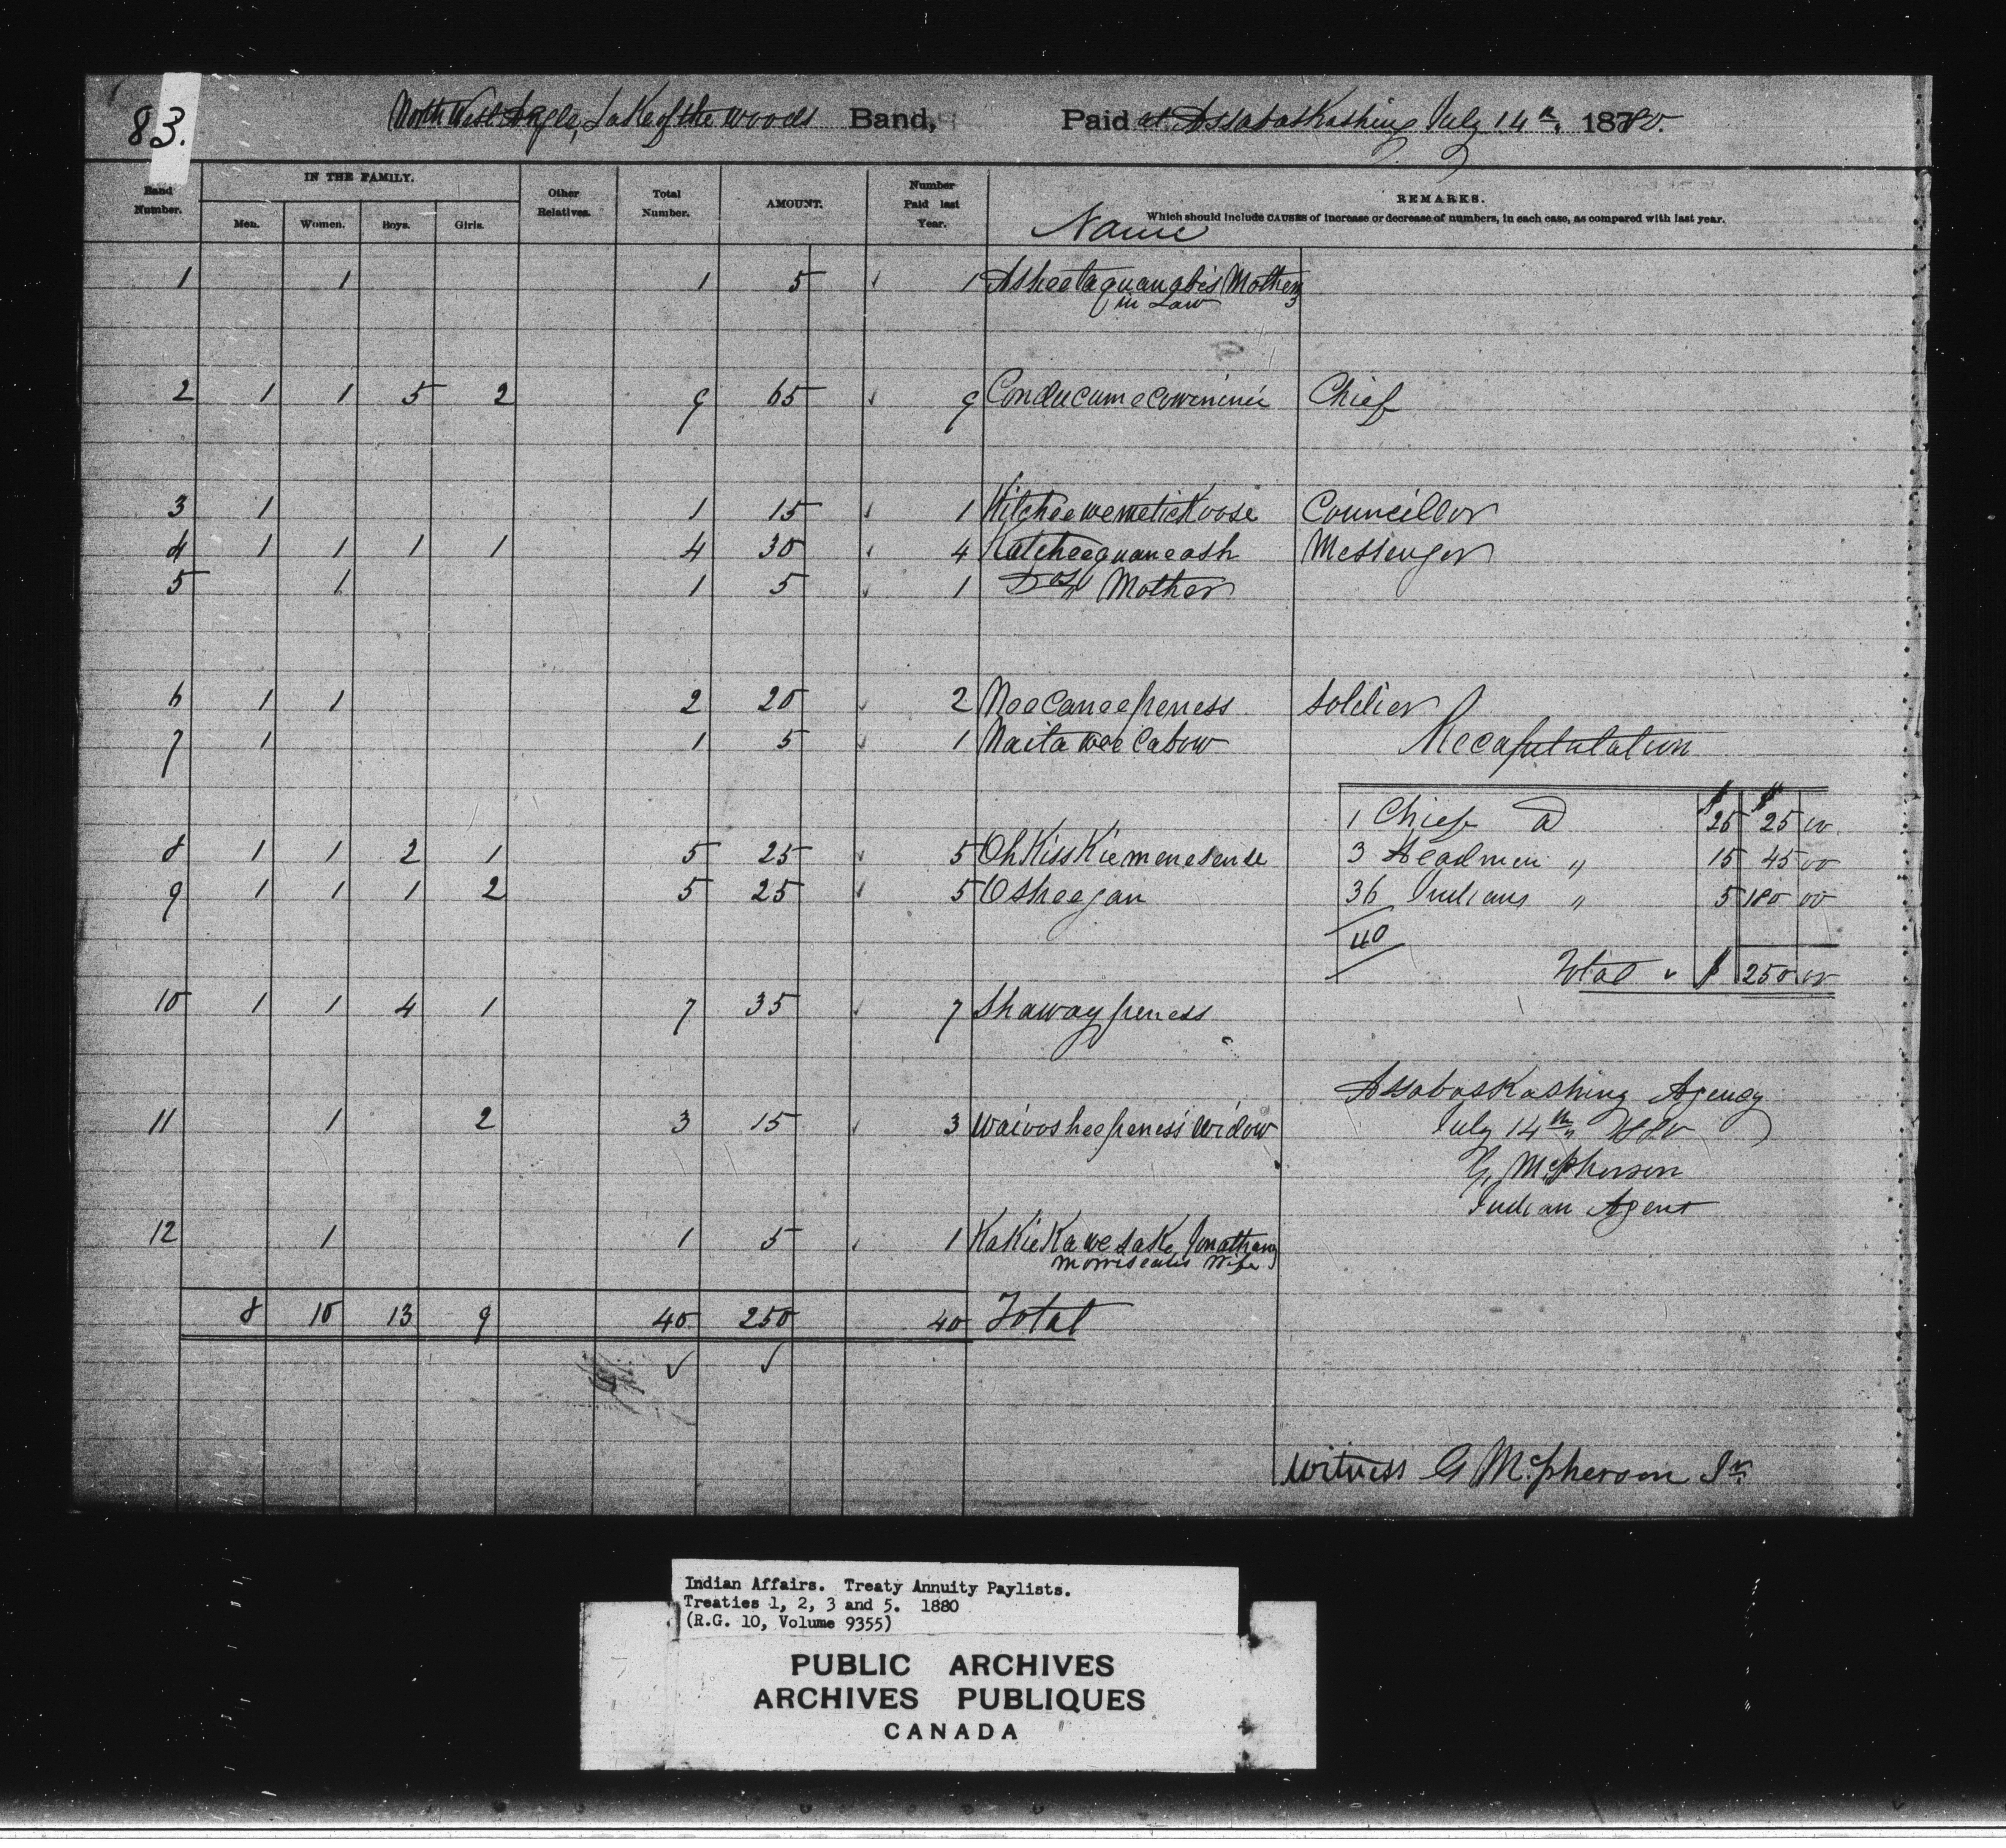 83.
North West Angle, Lake of the Woods Band, Paid at Assabaskashing July 14th, 1880.
Band Number. IN THE FAMILY. Men. Women. Boys. Girls. Other Relatives. Total Number. AMOUNT. Number Paid last Year. Name REMARKS.
Which should include CAUSES of increase or decrease of numbers, in each case, as compared with last year.
1 1 1 5 1 Asheetaquanabe's Mother
in Law
2 1 1 5 2 9 65 9 Conducumecowininie Chief
3 1 1 15 1 Kitcheewemetickoose Councillor
4 1 1 1 1 4 30 4 Katcheequaneash Messenger
5 1 1 5 1 Dos Mother
6 1 1 2 20 2 Neecaneepeness Soldier
7 1 1 5 1 Naitaweecabow
Recapitulation
$ $
1 Chief @ 25 25 00
8 1 1 2 1 5 25 5 Ohkisskiemenesense
3 Headmen " 15 45 00
9 1 1 1 2 5 25 5 Osheegan
36 Indians " 5 180 00
40
Total $ 250 00
10 1 1 4 1 7 35 7 Shawaypeness
Assabaskashing Agency
11 1 2 3 15 3 Waiwosheepeness' Widow
July 14th, 1880
G. McPherson
Indian Agent
12 1 1 5 1 Kakiekawesake Jonathan
Morriseau's Wife
8 10 13 9 40 250 40 Total
Witness G McPherson Jr.
Indian Affairs. Treaty Annuity Paylists.
Treaties 1, 2, 3 and 5. 1880
(R.G. 10, Volume 9355)
PUBLIC ARCHIVES
ARCHIVES PUBLIQUES
CANADA